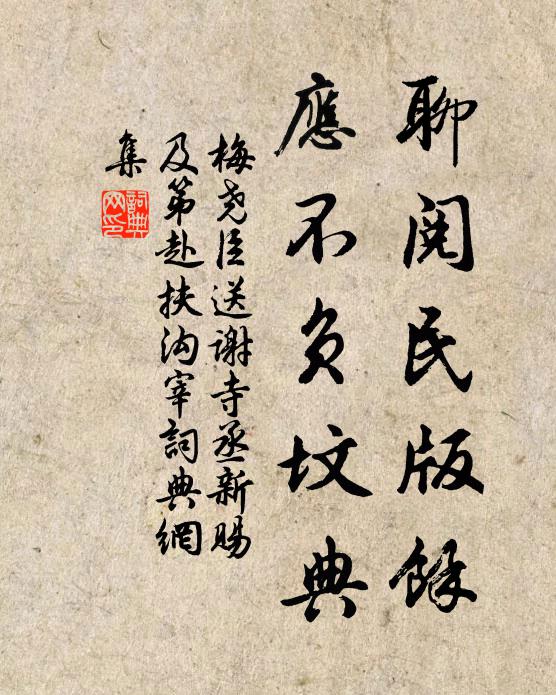 聊閱民版餘
應不負墳典
梅堯臣送謝寺丞新賜
及第赴扶溝宰詞典網
集
詞典
网印